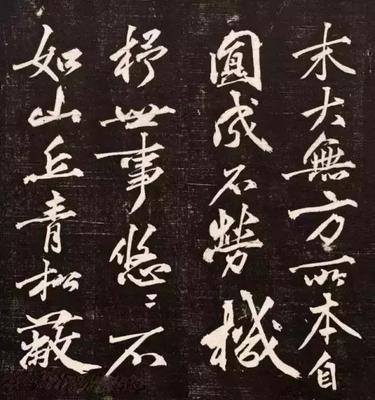 末大無方所本自
圓成不勞機
杼世事悠〻不
如山丘青松蔽